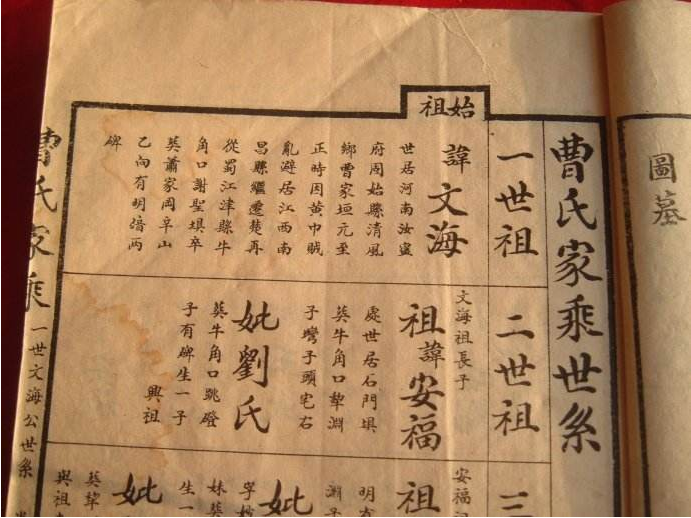 圖墓
曹氏家乘世系
始祖
一世祖
諱文海
世居河南汝寧
府固始縣清風
鄉曹家垣元至
正時因黃巾賊
亂避居江西南
昌縣繼遷楚再
從蜀江津縣牛
角口謝聖垻卒
葬蕭家岡阜山
乙向有明堦兩
碑
二世祖
文海祖長子
祖諱安福
處世居石門垻
葬牛角口犂淵
子灣子頭宅右
妣劉氏
葬牛角口跳磴
子有碑生一子
興祖
三
安福
祖
明有
淵子
妣
妹葬
生一
妣
葬犂
與祖
曹氏家乘
一世文海公世系